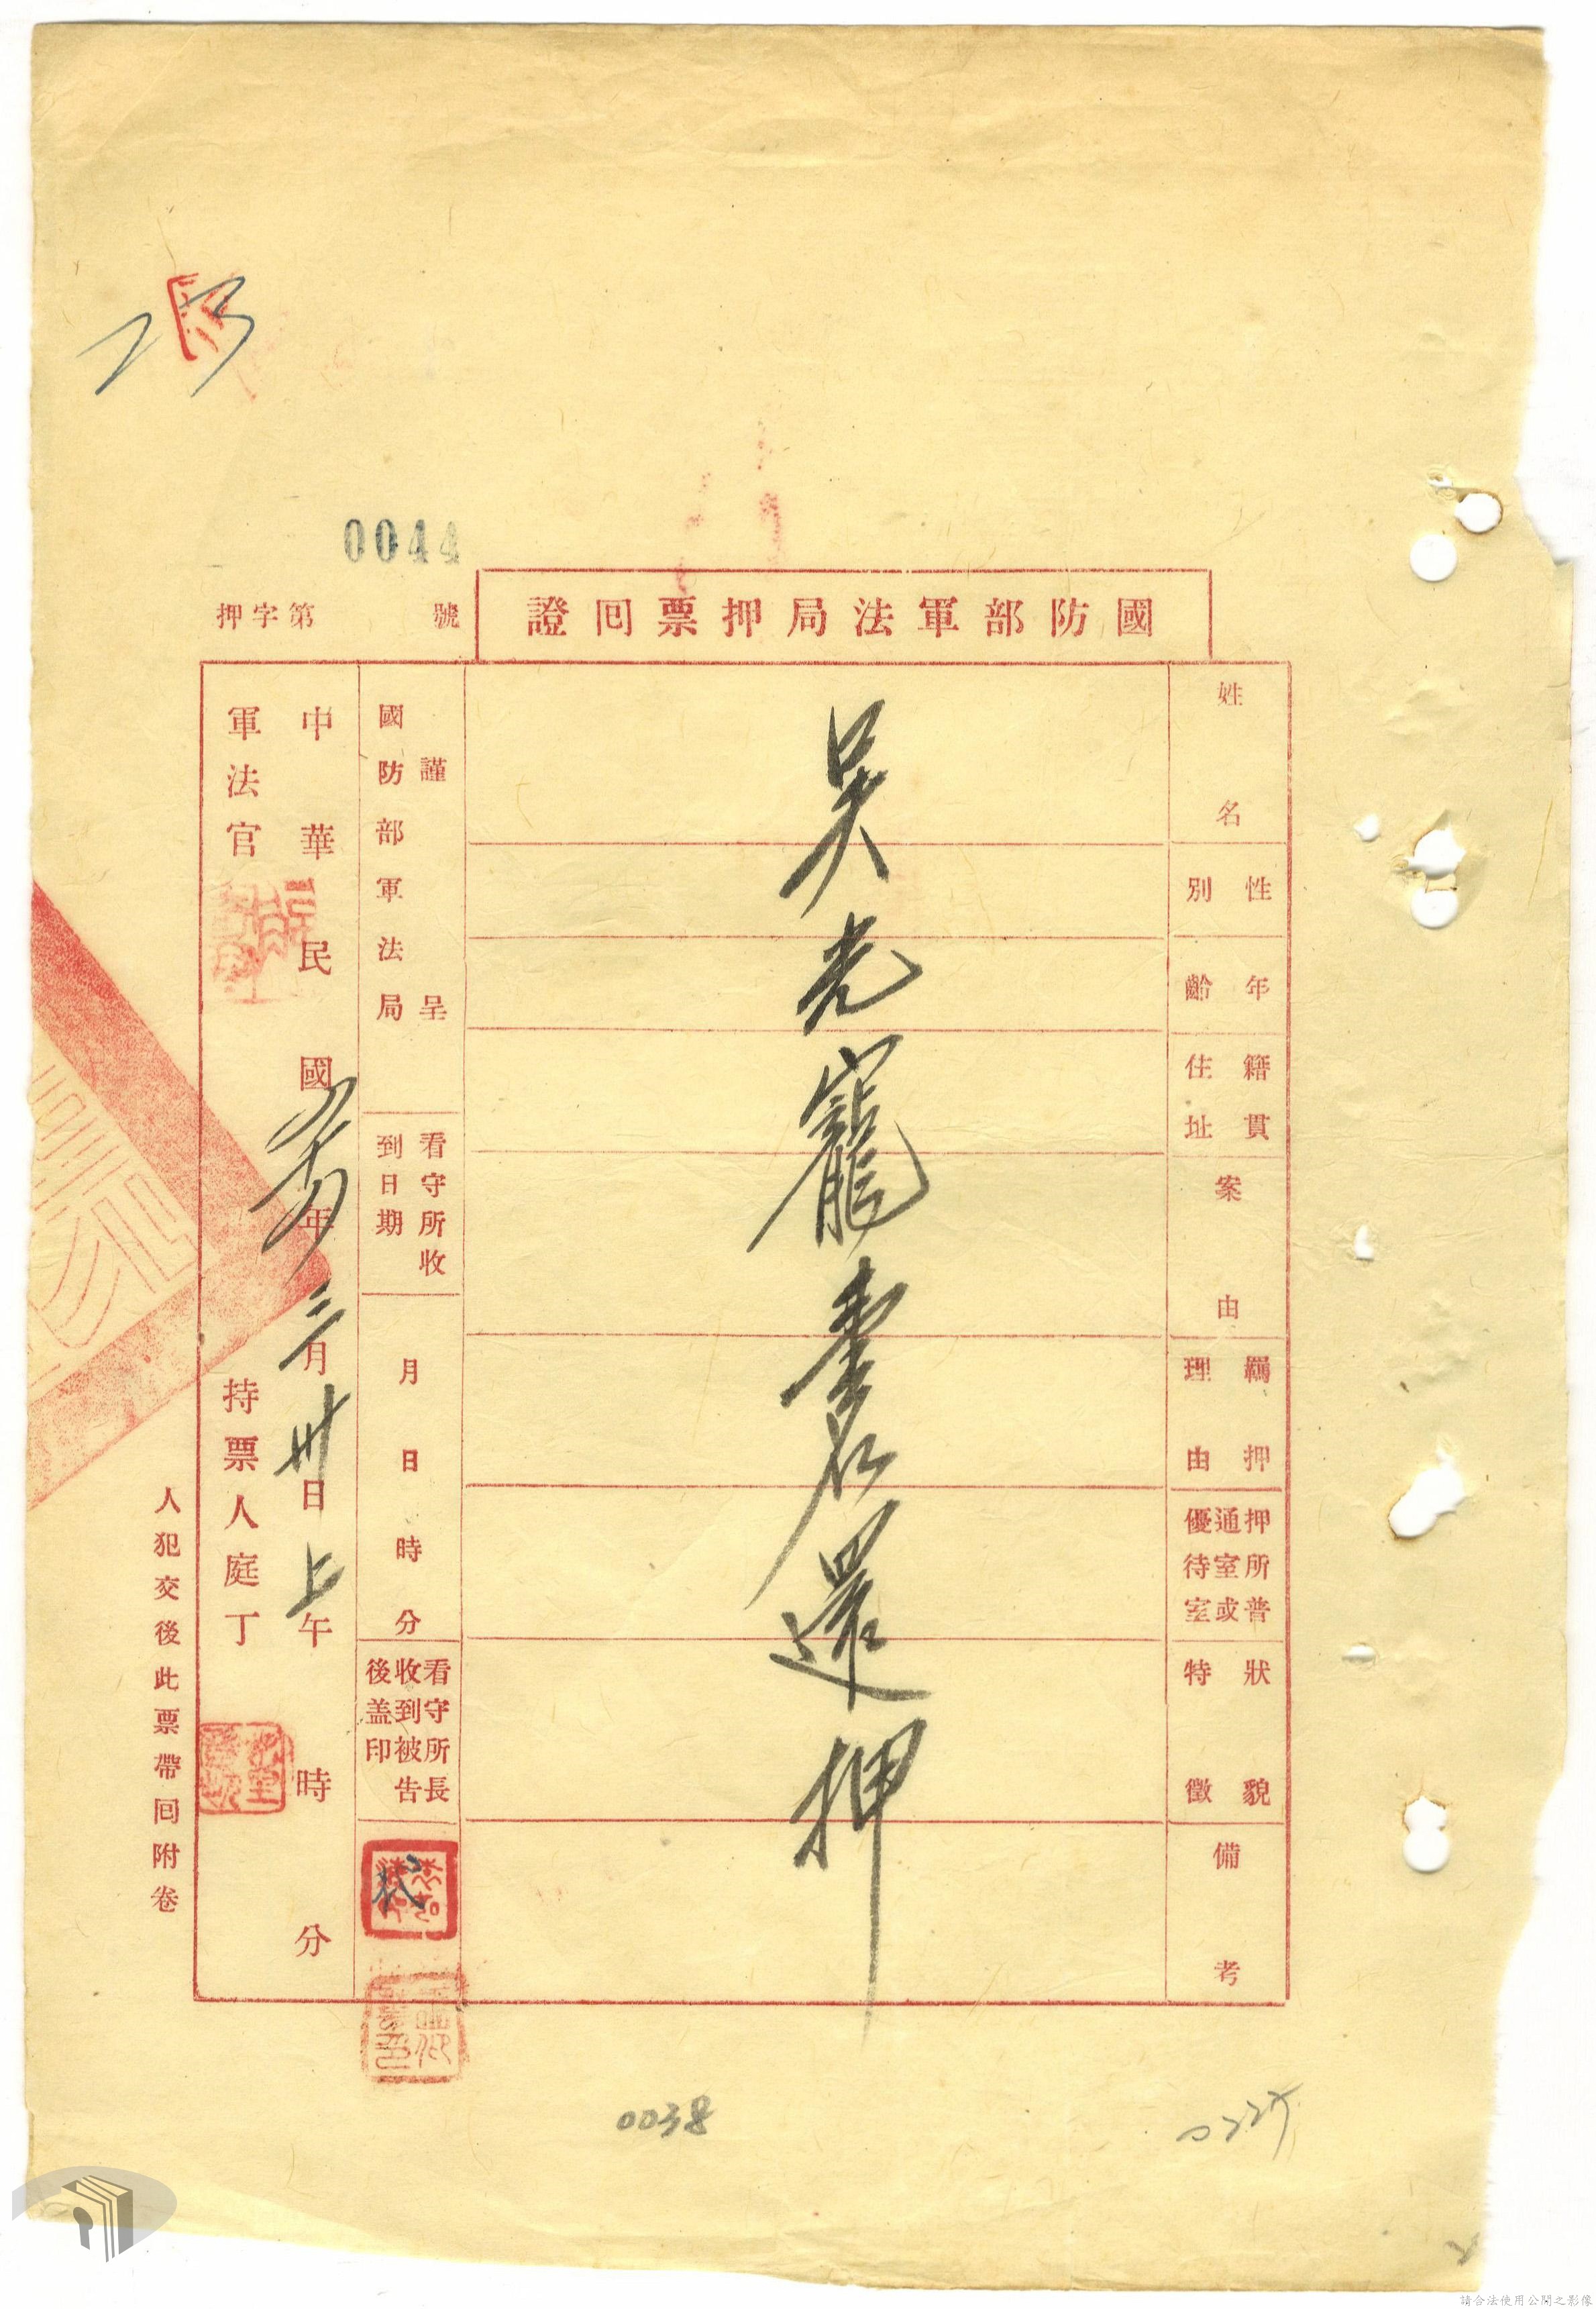 0044
國防部軍法局押票囘證
押字第 號
姓名
性別
年齡
籍貫
住址
案由
羈押
理由
押所普
通室或
優待室
狀貌
特徵
備考
吳光寵壹名還押
謹呈
國防部軍法局
看守所收
到日期
月日時分
看守所長
收到被告
後盖印
代
中華民國 年三月卅日上午 時 分
軍法官
持票人庭丁
人犯交後此票帶囘附卷
0038
請合法使用公開之影像